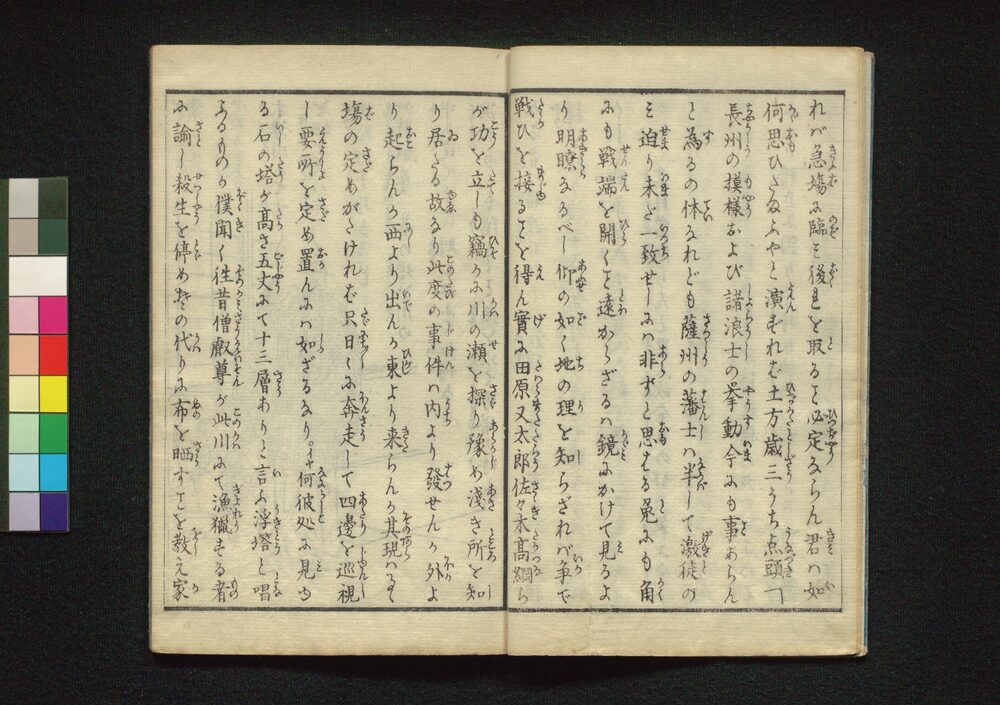 れバ急場に臨ミ後れを取ること必定ならん君ハ如
何思ひたまふやと演ずれバ土方歳三うち点頭つ
長州の摸様および諸浪士の挙動今にも事あらん
と為るの体なれども薩州の藩士ハ半して激徒の
ミ迫り未だ一致せしにハ非ずと思はる兎にも角
にも戦端を開くこと遠からざるハ鏡にかけて見るよ
り明瞭なるべし仰の如く地の理を知らざれバ争で
戦ひを接ることを得ん實に田原又太郎佐々木高綱ら
が功を立しも竊かに川の瀬を探り豫め淺き所を知
り居たる故なり此度の事件ハ内より發せんか外よ
り起らんか西より出んか東より来らんか其現ハるゝ
場の定めがたけれバ只日々に奔走して四邊を巡視
し要所を定め置んにハ如ざるなり。イヤ何彼処に見ゆ
る石の塔ハ高さ五丈にて十三層ありと言ふ浮塔と唱
ふるものか僕聞く徃昔僧叡尊が此川にて漁獵する者
に諭し殺生を停め其の代りに布を晒すことを教え家